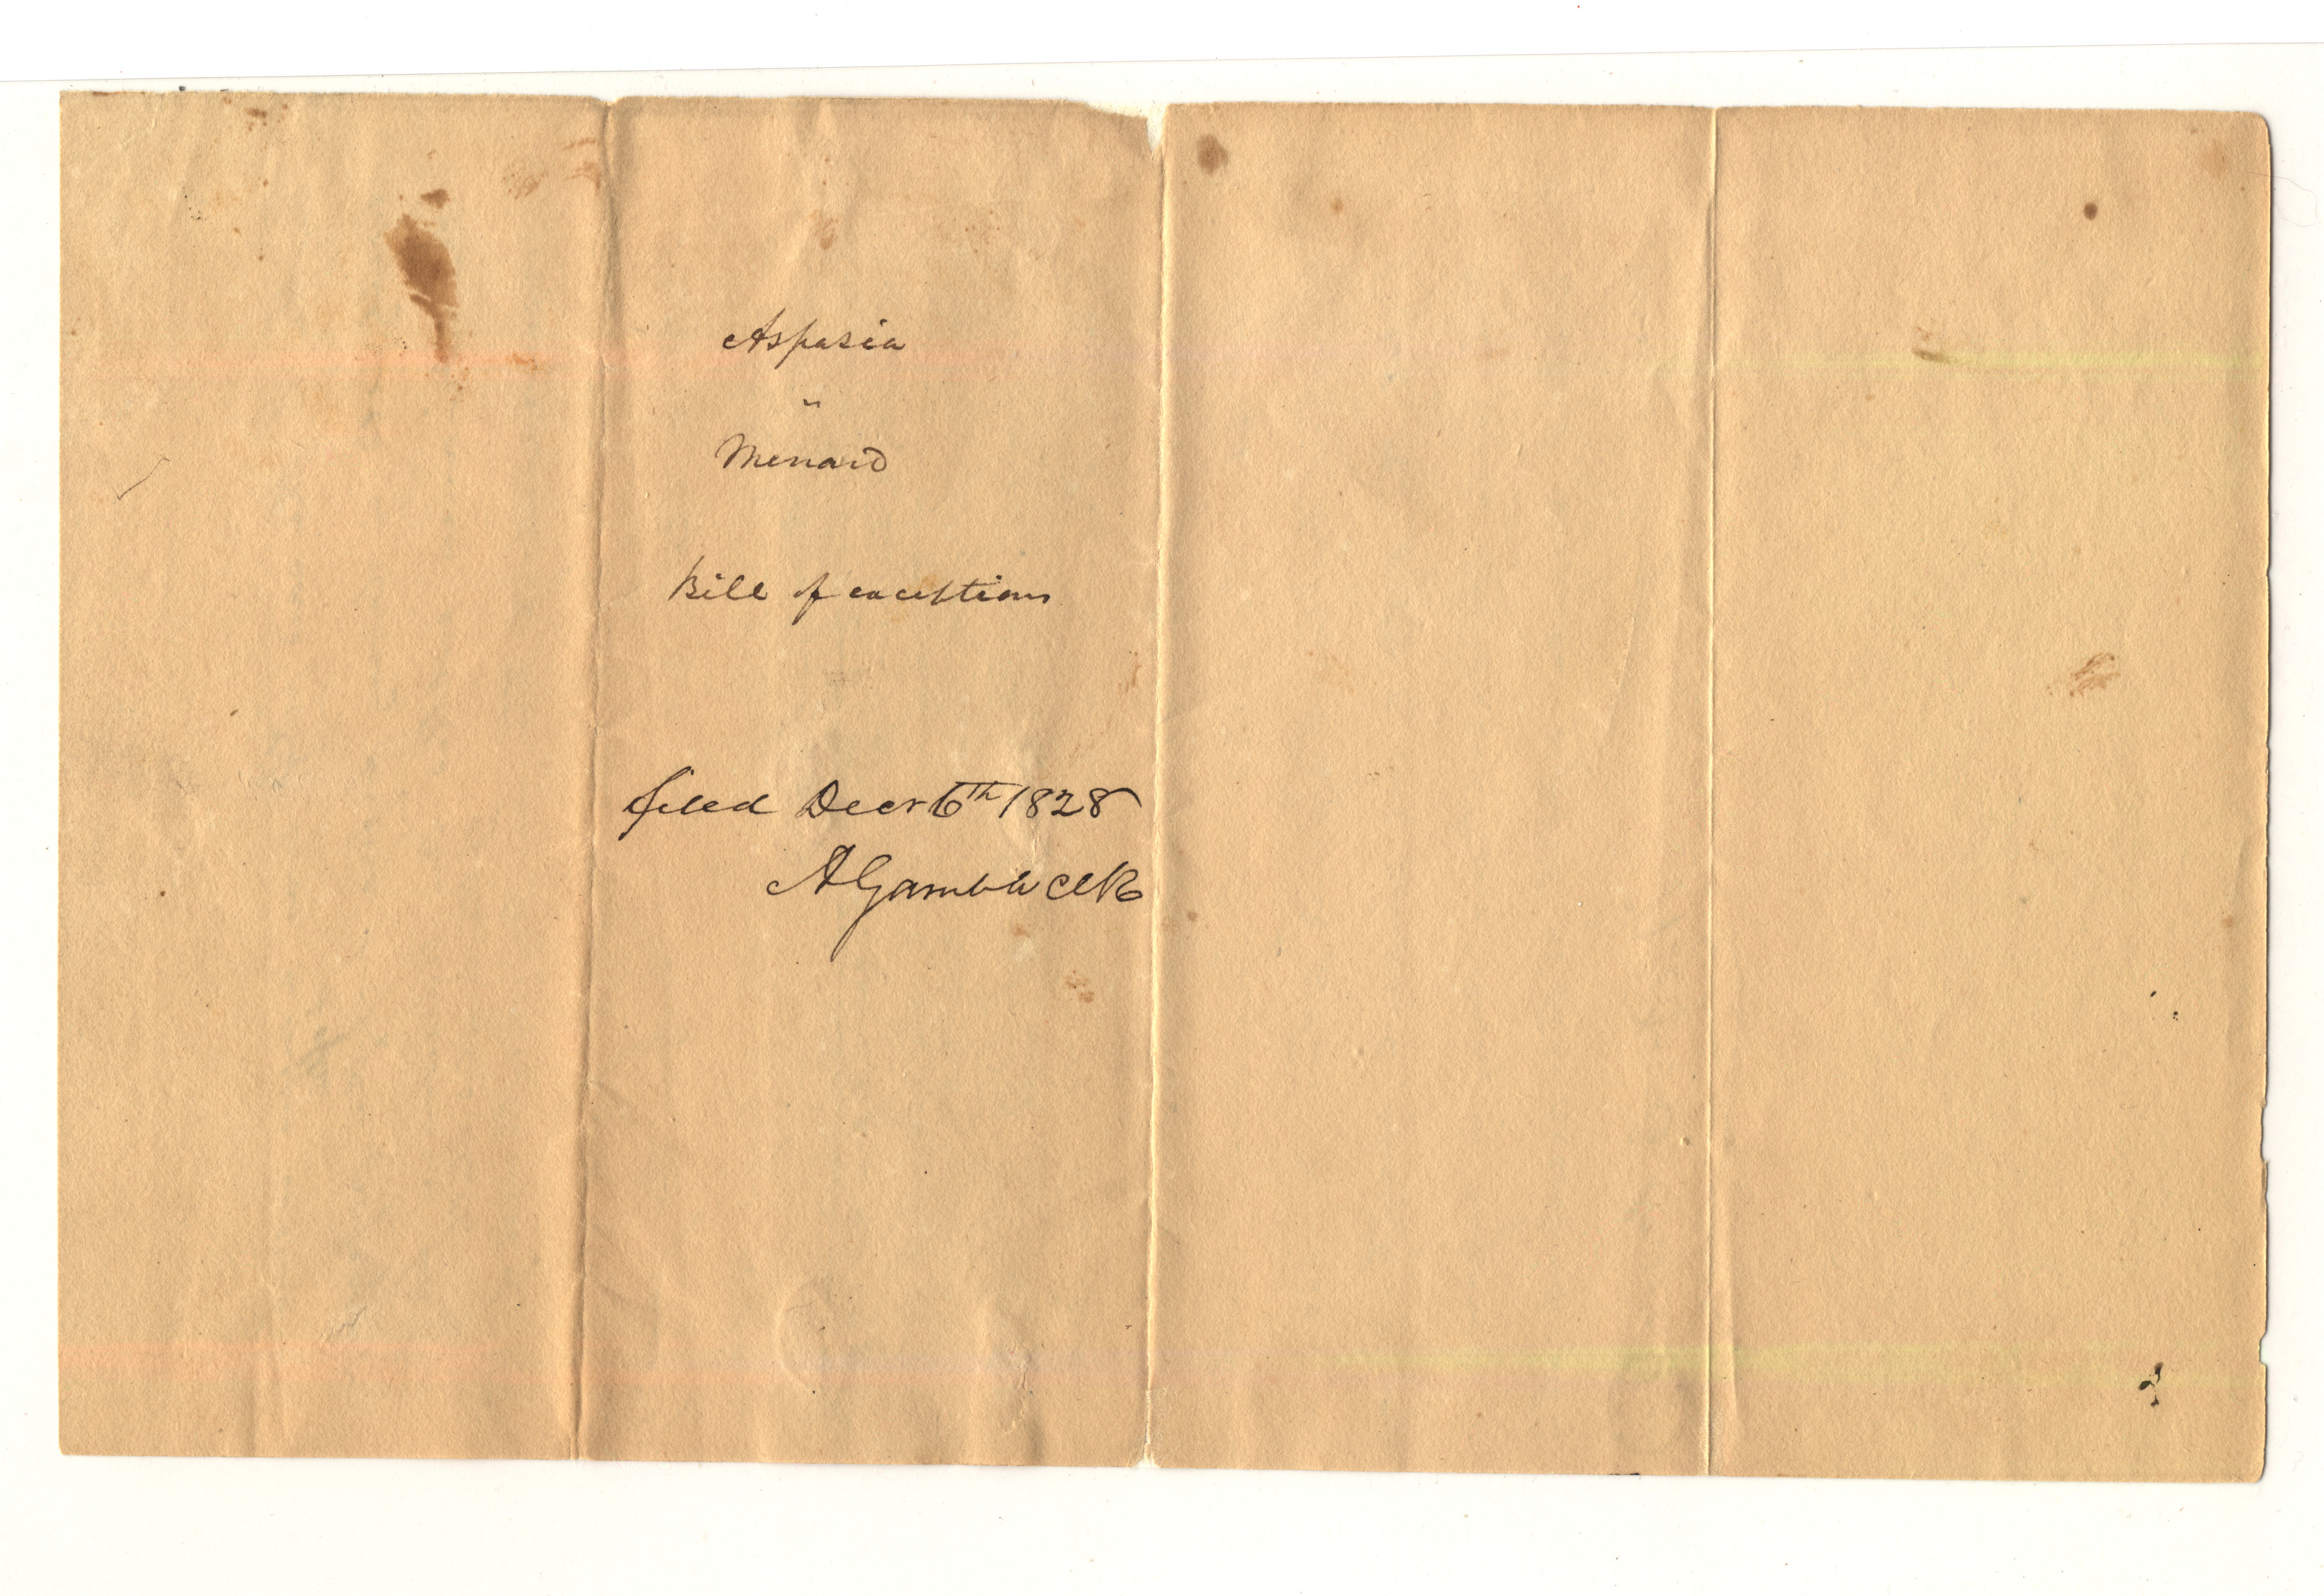 Aspasia
"
Menard
Bill of exceptions
filed Decr 6th 1828
A Gamble Clk